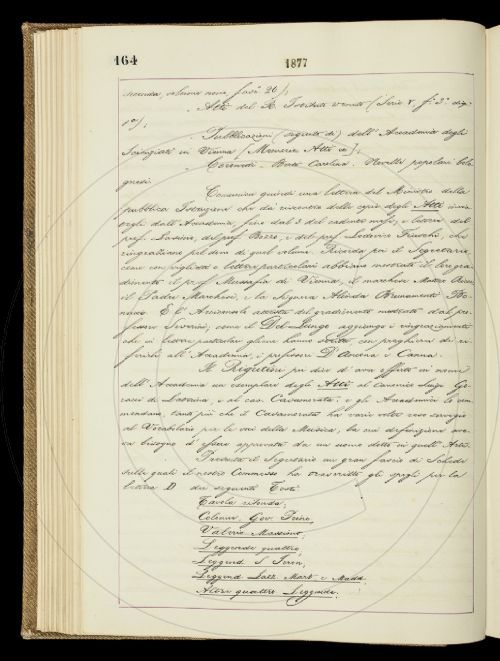 164
1877
seconda, edizione nona, fasc. 26);
Atti del R. Istituto veneto (Serie V, t. 3° disp.
1ª);
Pubblicazioni (seguito di) dell'Accademia degli
in Vienna [Memorie Atti ec.];
Coronedi - Berti Carolina. Novelle popolari bolo
gnesi.
Comunica quindi una lettera del Ministro della
pubblica Istruzione che dà riscontro delle copie degli Atti invia
tegli dall'Accademia, fino dal 3 del cadente mese, e lettere del
prof. del prof. e del prof. Lodovico che
ringraziano pel dono di quel volume. Ricorda poi il Segretario
come con biglietti e lettere particolari abbiano mostrato il loro gra
dimento il prof. Mussafia di Vienna, il marchese Matteo Ricci
il Padre Marchesi, e la Signora Alinda Brunamonti Bo
nacci. E l'Arciconsolo accerta del gradimento mostrato dal pro
fessore Severini, come il Del-Lungo aggiunge i ringraziamenti
che in lettere particolari gliene hanno scritto, con preghiera di ri
ferirli all'Accademia, i professori D'Ancona e Canna.
Il Rigutini poi dice d'aver offerto in nome
dell'Accademia un esemplare degli Atti al Canonico Luigi
di e al cav. Casamorata, e gli Accademici lo com
mendano, tanto più che il Casamorata ha varie volte reso servigio
al Vocabolario per le voci della Musica, la cui definizione ave
va bisogno d'essere approvata da un uomo dotto in quell'Arte.
Presenta il Segretario un gran fascio di Schede
sulle quali il nostro Commesso ha trascritto gli spogli per la
lettera D dai seguenti Testi
Tavola ritonda;
Colonne, Gov. Princ.,
Valerio Massimo,
Leggende quattro,
Leggend. S. Jeron.,
Leggend. Lazz. Mart. e Madd.,
Altre quattro Leggende.